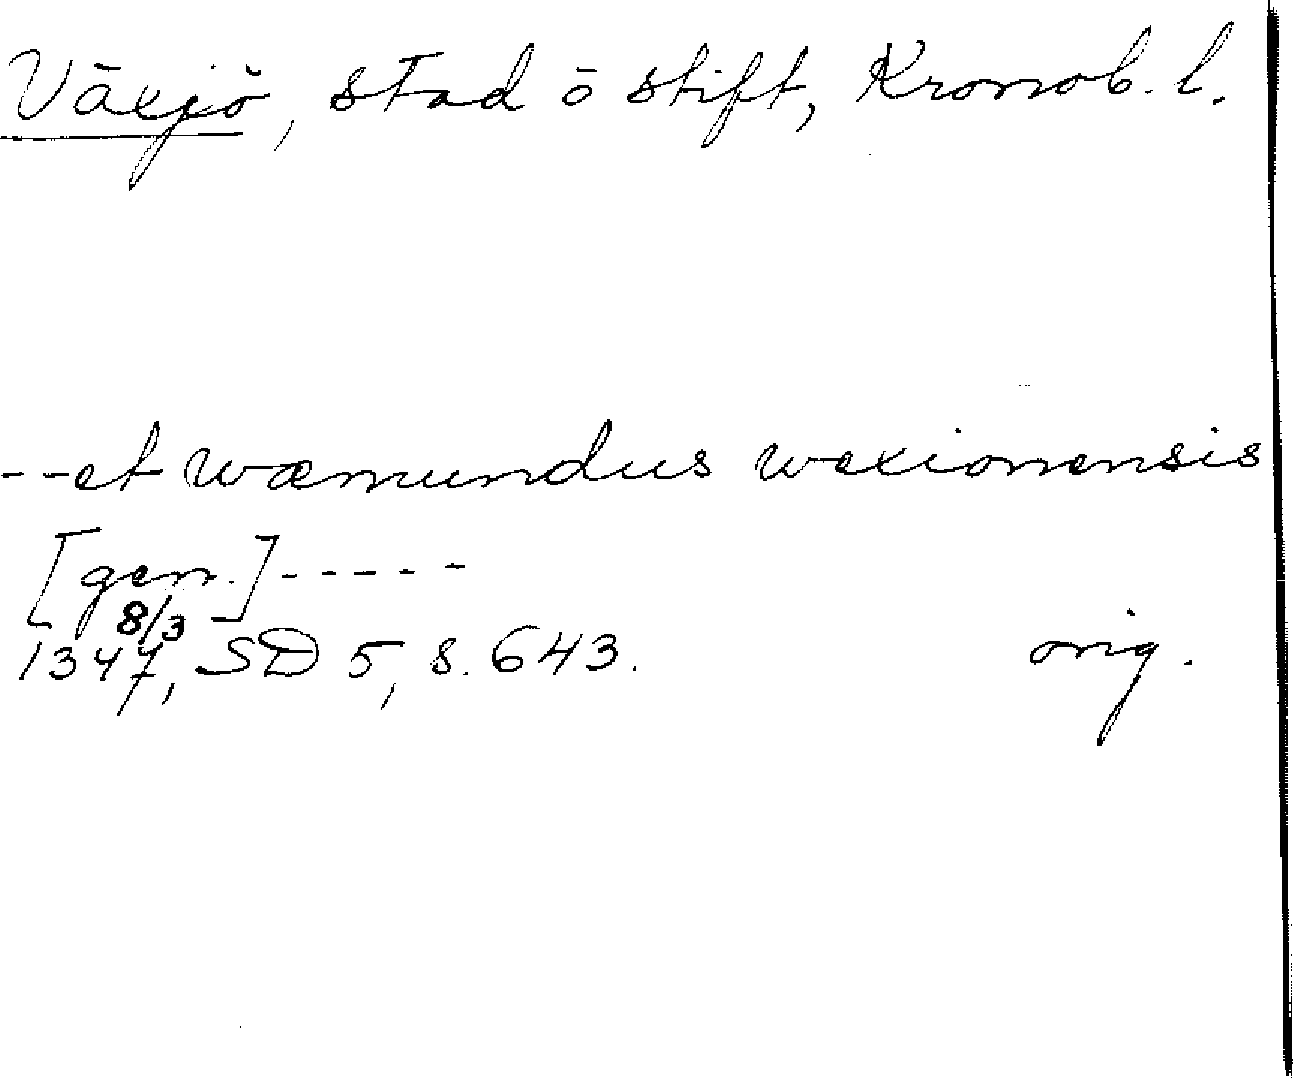 Växjö, stad o stift, Kronob. l.
--et wæmundus wexionensis
[gen.]-----
8/3
1347, SD 5, s. 643. orig.